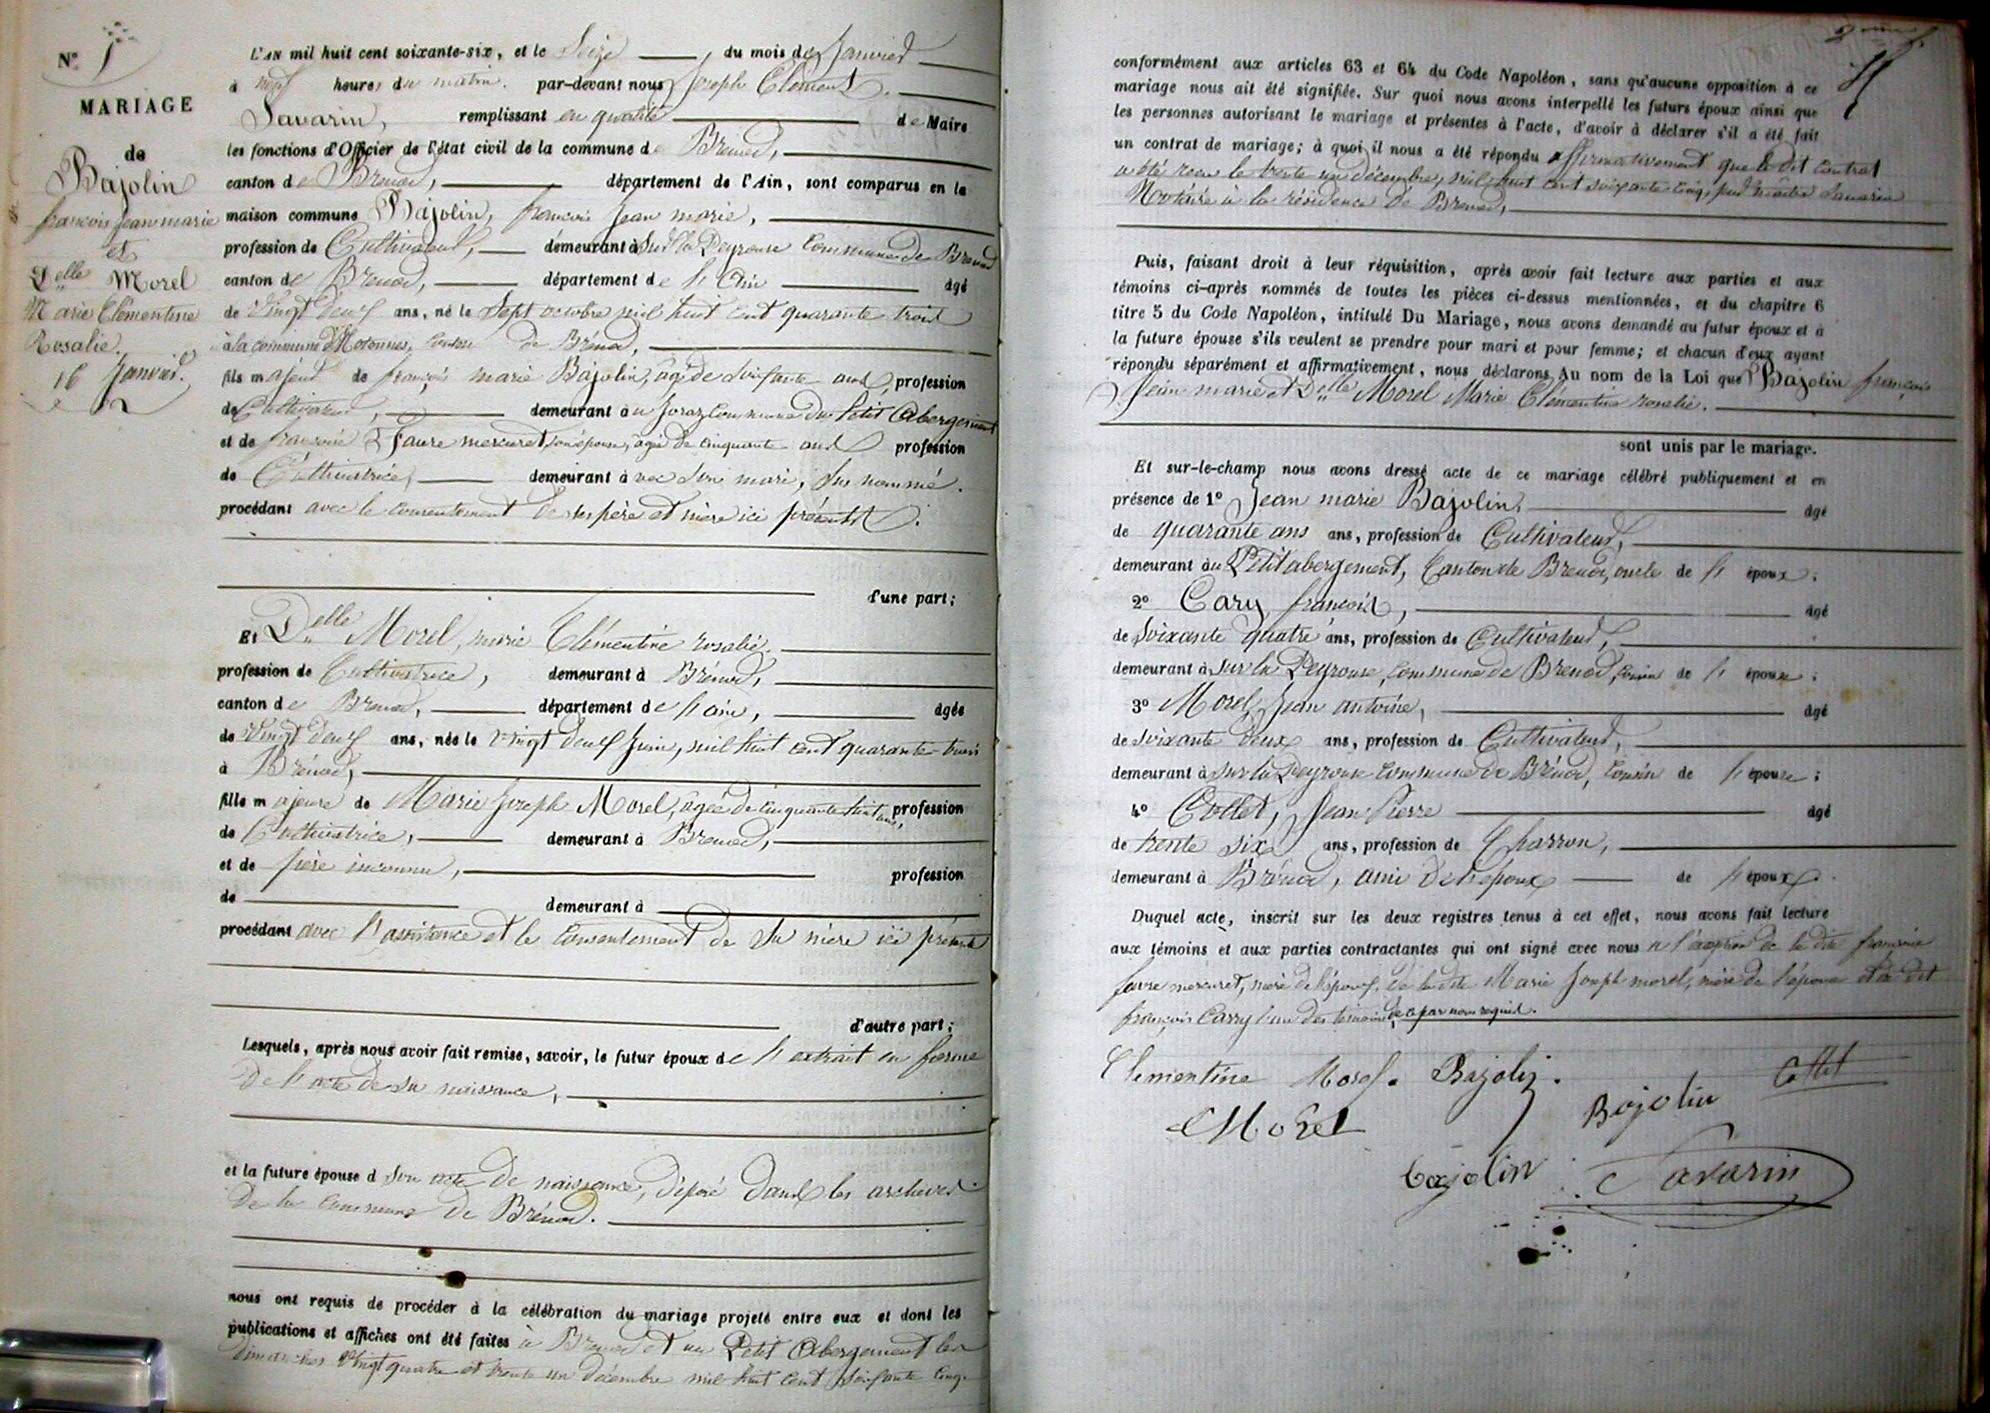 N.° 1
MARIAGE
de
Bajolin
françois Jean marie
et
Delle Morel
Marie Clémentine
Rosalie.
16 Janvier.
L'AN mil huit cent soixante-six, et le Seize du mois de Janvier
à neuf heures du matin. par-devant nous Joseph Clément
Savarin, remplissant en qualité de Maire
les fonctions d'Officier de l'état civil de la commune de Brénod,
canton de Brénod, département de l'Ain, sont comparus en la
maison commune Bajolin, françois Jean marie,
profession de Cultivateur, demeurant à Sur la Peyrouse Commune de Brénod
canton de Brénod, département de l'Ain âgé
de Vingt deux ans, né le Sept octobre mil huit cent quarante trois
à la commune d'Hotonnes, Canton de Brénod,
fils majeur de françois marie Bajolin, agé de Soixante ans, profession
de Cultivateur, demeurant au Jorat Commune du Petit Abergement
et de françoise Favre mercuret, son épouse, agée de cinquante ans profession
de Cultivatrice, demeurant avec Son mari, Sus nommé.
procédant avec le consentement de ses père et mère ici présents.
d'une part;
Et Delle Morel, marie Clémentine rosalie.
profession de Cultivatrice, demeurant à Brénod,
canton de Brénod, département de l'ain, âgée
de Vingt deux ans, née le vingt deux Juin, mil huit cent quarante trois
à Brénod,
fille majeure de Marie Joseph Morel, agée de cinquante huit ans, profession
de Cultivatrice, demeurant à Brénod,
et de père inconnu, profession
de demeurant à
procédant avec l'assistance et le Consentement de Sa mère ici présente
d'autre part;
Lesquels, après nous avoir fait remise, savoir, le futur époux de l'extrait en forme
De l'acte de Sa naissance,
et la future épouse d Son acte De naissance, déposé Dans les archives
De la Commune De Brénod.
nous ont requis de procéder à la célébration du mariage projeté entre eux et dont les
publications et affiches ont été faites à Brénod et au Petit Abergement les
Dimanches Vingt quatre et trente un Décembre mil huit cent Soixante Cinq.
conformément aux articles 63 et 64 du Code Napoléon, sans qu'aucune opposition à ce
mariage nous ait été signifiée. Sur quoi nous avons interpellé les futurs époux ainsi que
les personnes autorisant le mariage et présentes à l'acte, d'avoir à déclarer s'il a été fait
un contrat de mariage; à quoi il nous a été répondu affirmativement que le dit contrat
a été reçu le trente un décembre, mil huit cent soixante cinq, par maître Savarin
Notaire à la résidence de Brénod,
Puis, faisant droit à leur réquisition, après avoir fait lecture aux parties et aux
témoins ci-après nommés de toutes les pièces ci-dessus mentionnées, et du chapitre 6
titre 5 du Code Napoléon, intitulé Du Mariage, nous avons demandé au futur époux et à
la future épouse s'ils veulent se prendre pour mari et pour femme; et chacun d'eux ayant
répondu séparément et affirmativement, nous déclarons Au nom de la Loi que Bajolin françois
Jean marie et Delle Morel Marie Clémentine rosalie.
sont unis par le mariage.
Et sur-le-champ nous avons dressé acte de ce mariage célébré publiquement et en
présence de 1° Jean marie Bajolin, âgé
de quarante ans ans, profession de Cultivateur,
demeurant au Petit abergement, Canton de Brénod, oncle de l'époux;
2° Cary françois, âgé
de Soixante quatre ans, profession de Cultivateur,
demeurant à Sur la Peyrouse, commune de Brénod, cousin de l'épouse;
3° Morel, Jean antoine, âgé
de Soixante deux ans, profession de Cultivateur,
demeurant à Sur la Peyrouse Commune de Brénod, Cousin de l'épouse;
4° Collet, Jean Pierre âgé
de trente six ans, profession de Charron,
demeurant à Brénod, ami de l'époux de l'époux.
Duquel acte, inscrit sur les deux registres tenus à cet effet, nous avons fait lecture
aux témoins et aux parties contractantes qui ont signé avec nous à l'exception de la dite françoise
favre mercuret, mère de l'époux, de la dite Marie Joseph morel, mère de l'épouse et du dit
françois Carry l'un des témoins de ce par nous requis.
Clementine Morel. Bajolin.
Bajolin Collet
Morel
Bajolin Savarin